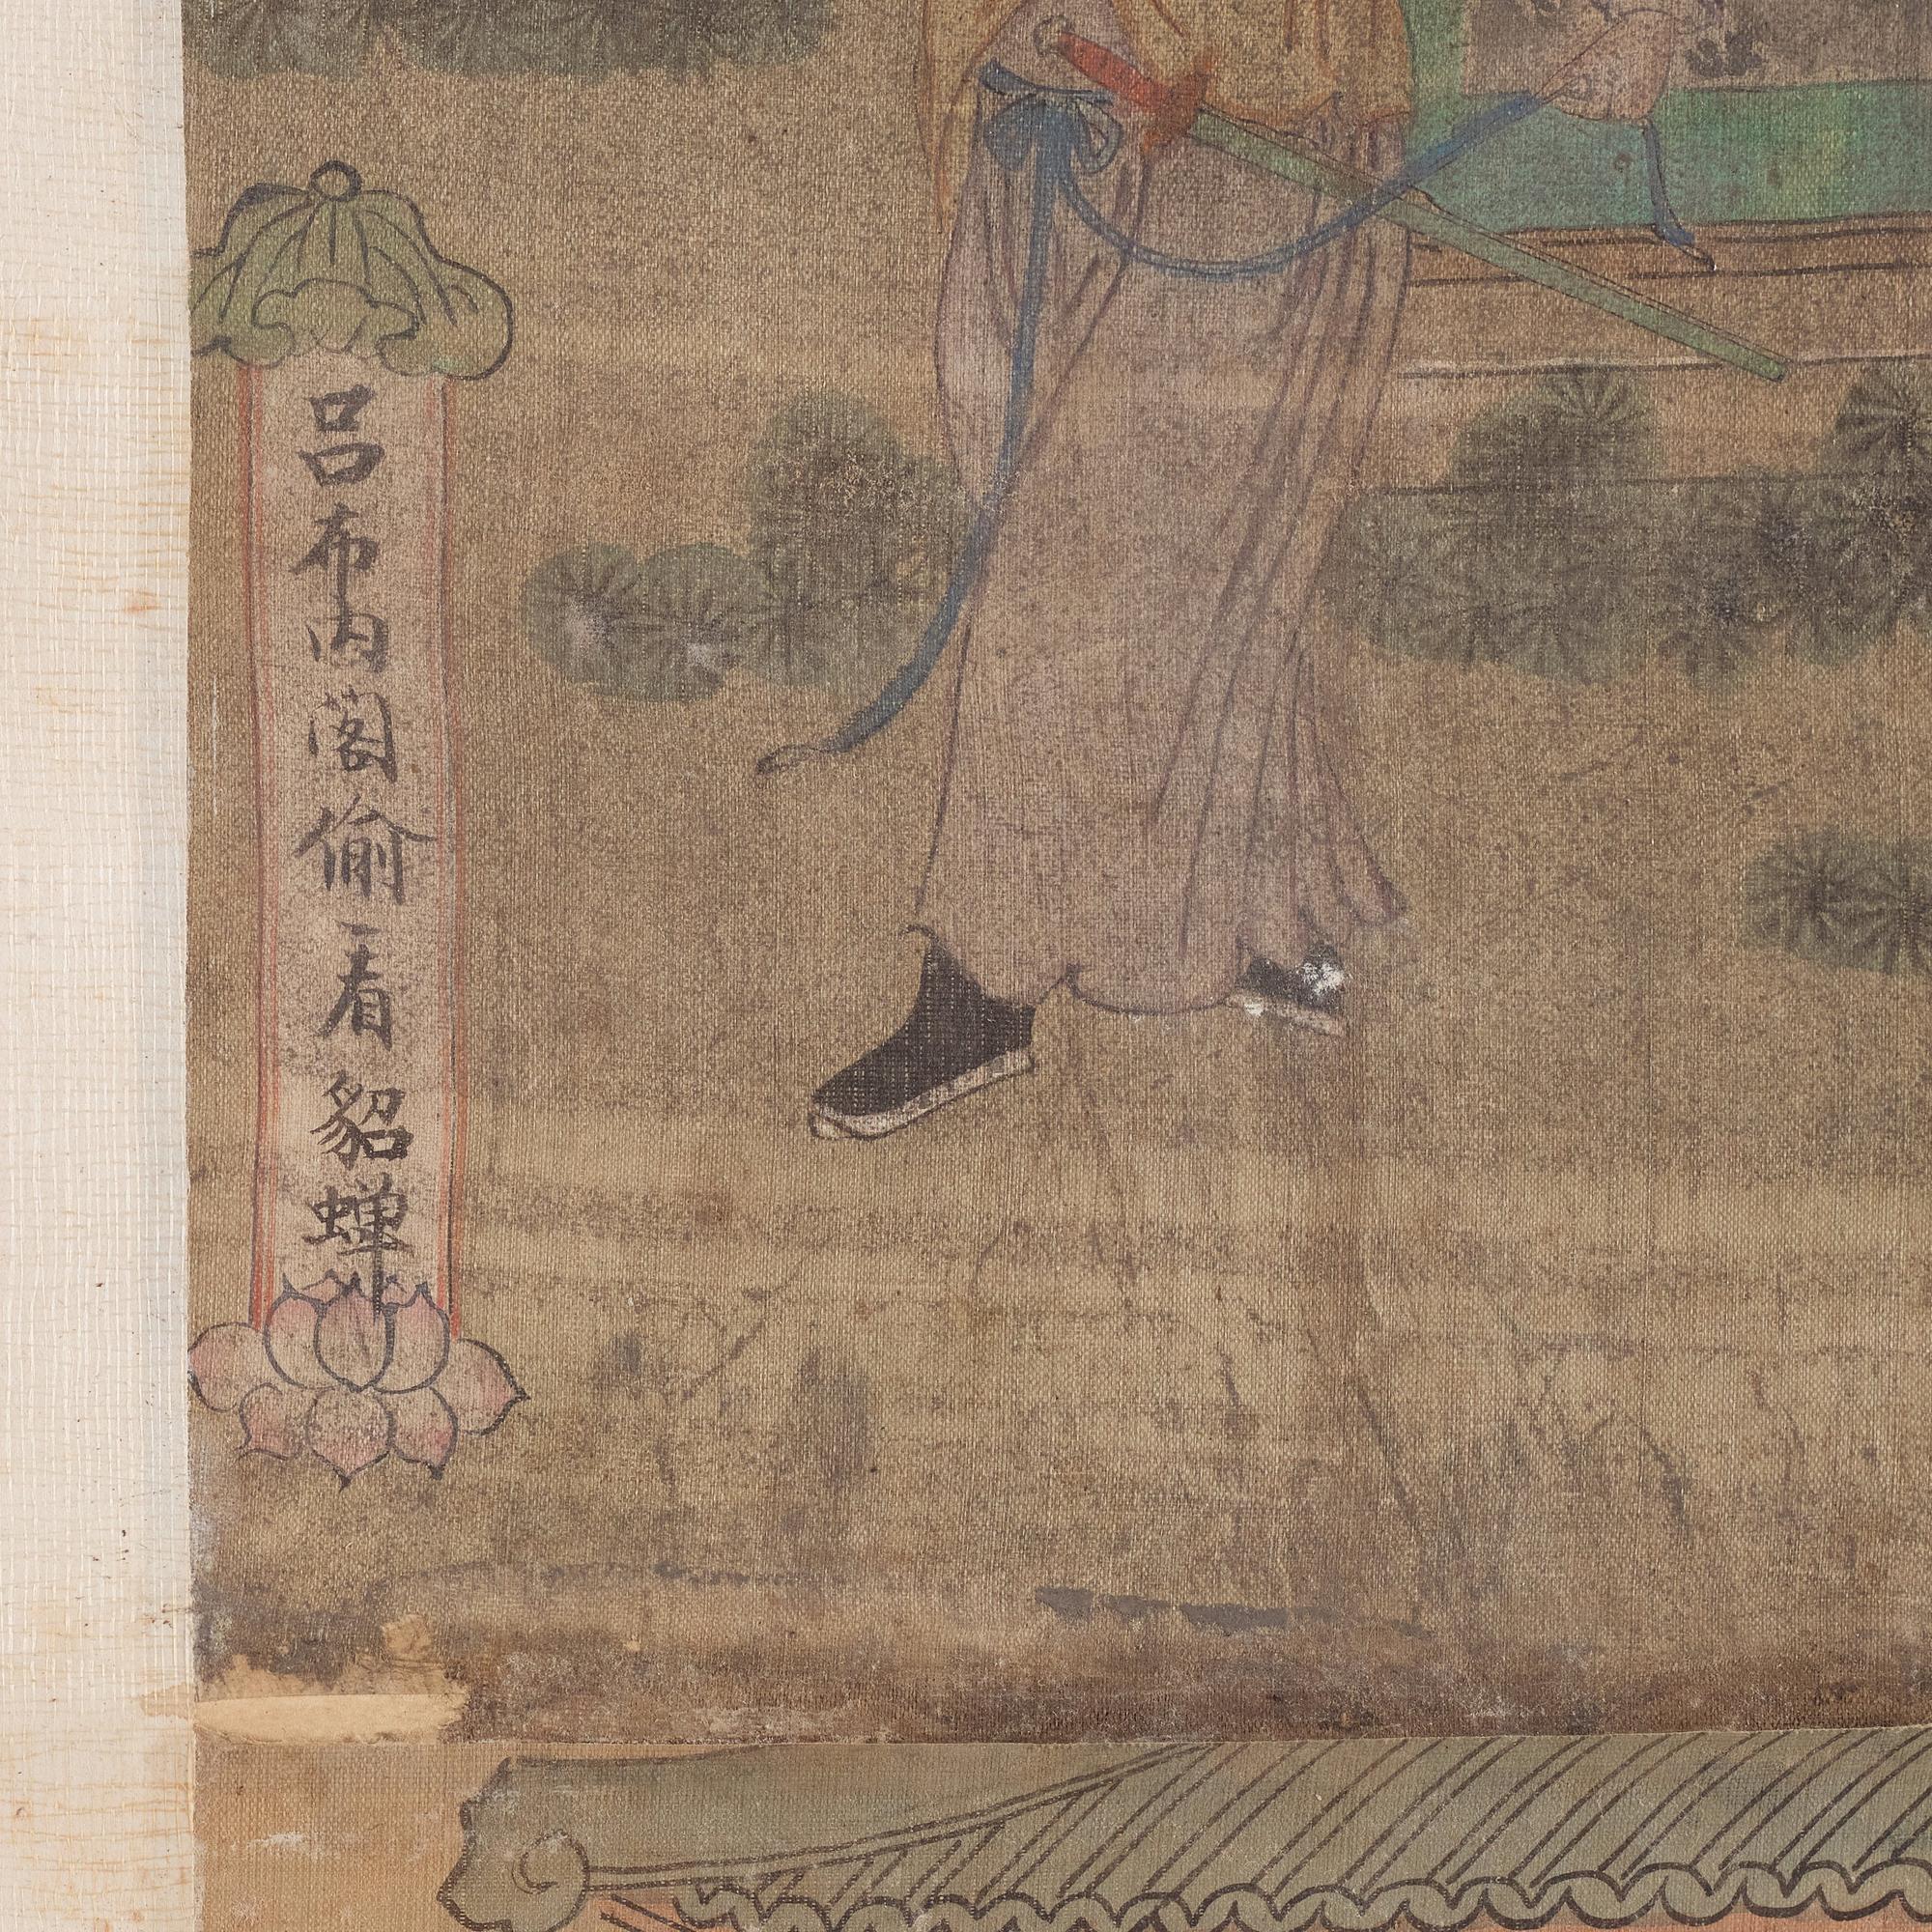 呂布内閣偷看貂蟬